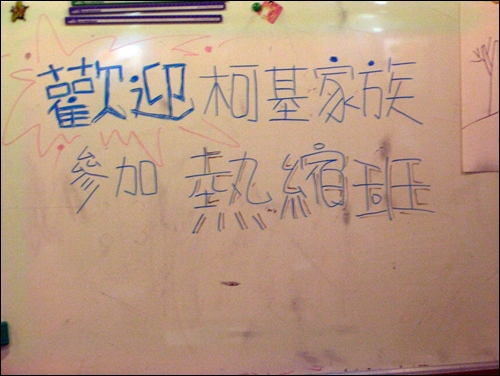 歡迎柯基家族
參加熱縮班